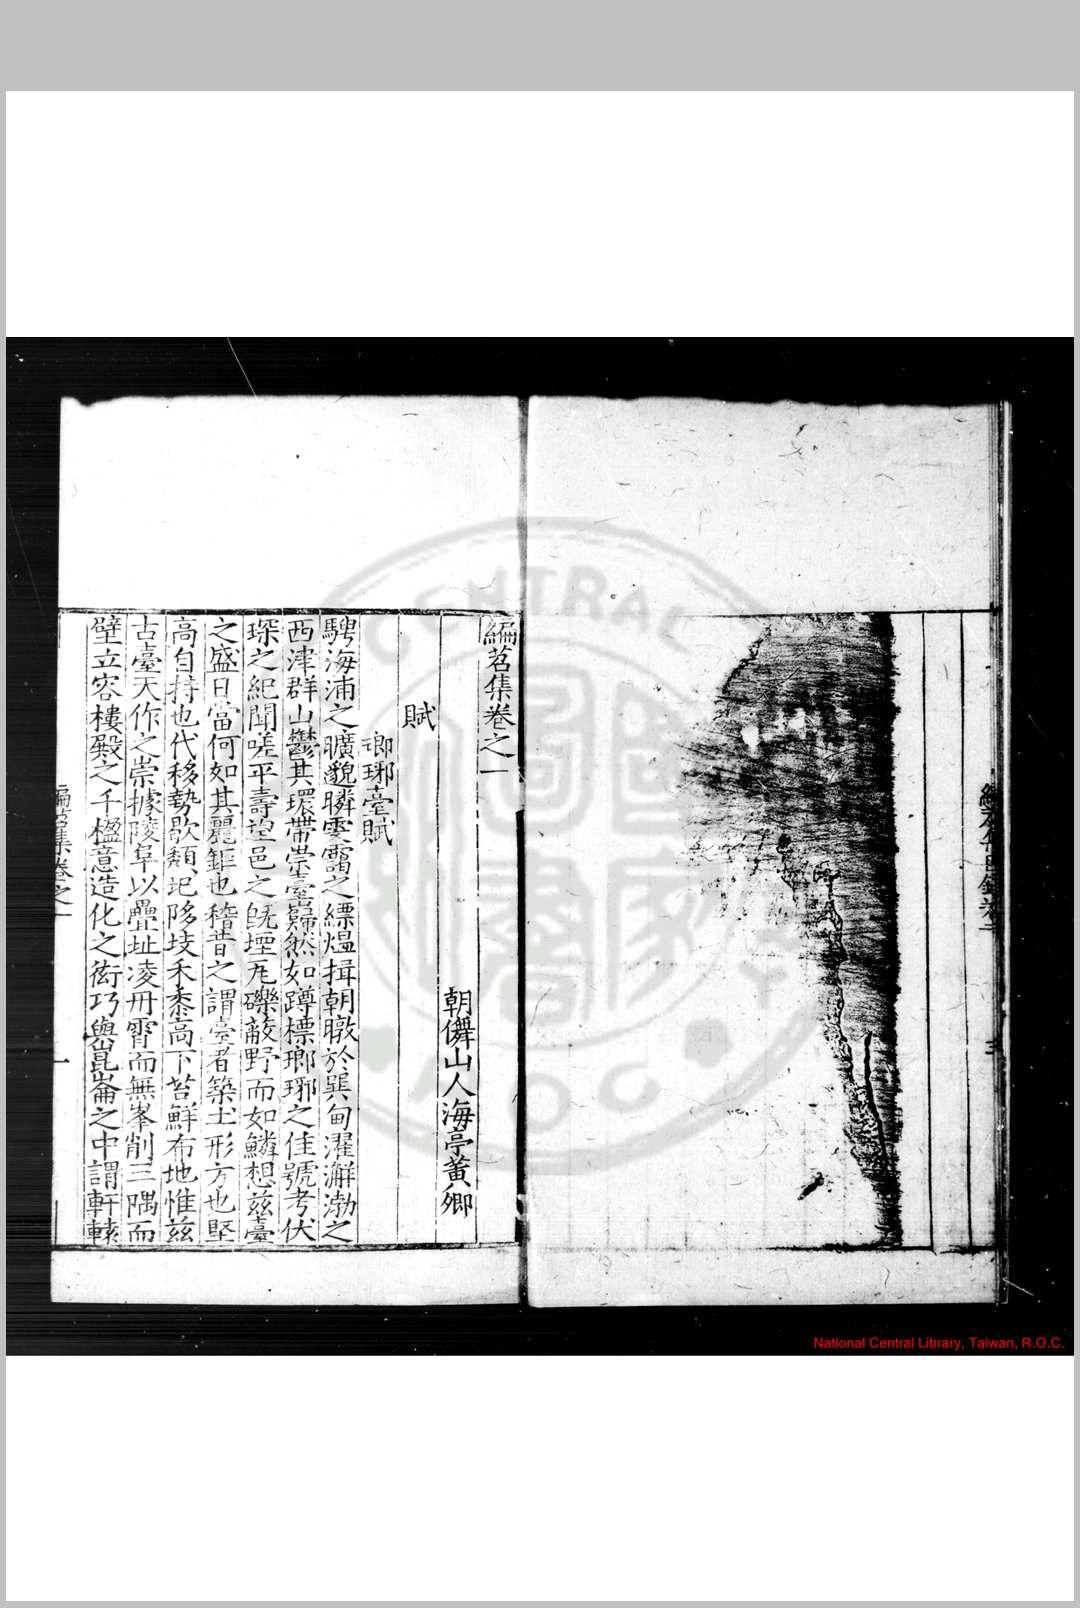 編苕集卷之一
朝儛山人海亭黃卿
賦
瑯琊臺賦
騁海浦之曠邈瞵雯靄之縹熅揖朝暾於巽甸濯澥渤之
西津群山鬱其環帶崇臺巋然如蹲標瑯琊之佳號考伏
琛之紀聞嗟平壽望邑之旣堙瓦礫蔽野而如鱗想茲臺
之盛日當何如其麗鉅也稽昔之謂臺者築土形方也堅
高自持也代移勢歇頽圮陊歧禾黍高下苔鮮布地惟茲
古臺天作之崇據陵阜以疊址凌丹霄而無峯削三隅而
壁立容樓殿之千楹意造化之衒巧與崑崙之中謂軒轅
編苕集卷之一
一
CENTRAL
ROC
National Central Library, Taiwan, R.O.C.